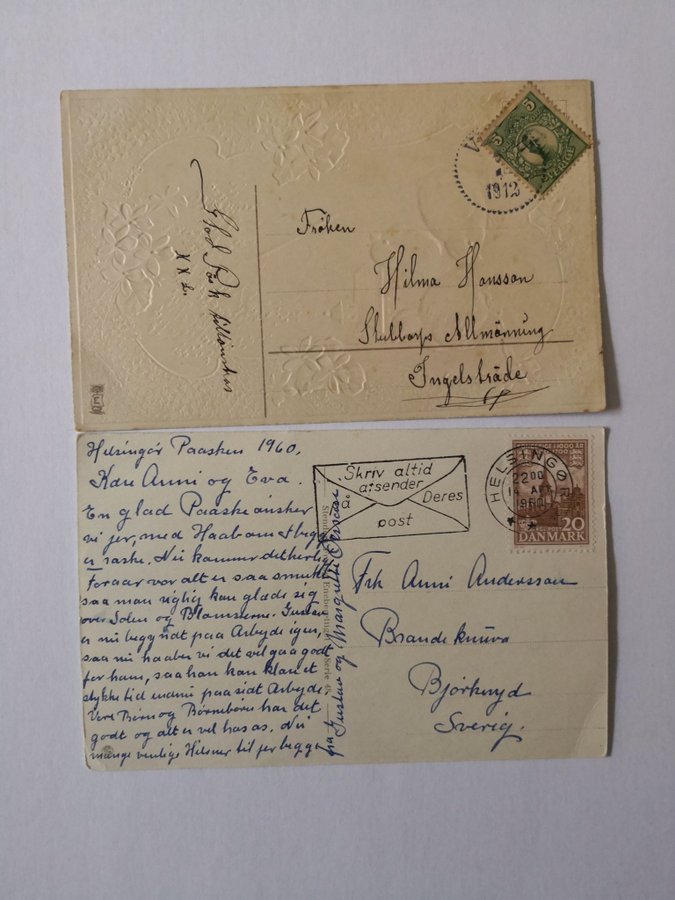 5 5
SVERIGE
1912
Fröken
Hilma Hansson
Allmänning
Ingelsträde
Glad Påsk tillönskas
Helsingör Paasken 1960.
Kære Anni og Eva.
En glad Paaske ønsker
vi jer, med Haab om at begge
er raske. Nu kommer det herlige
Foraar vor alt er saa smukt
saa man rigtig kan glæde sig
over Solen og Blomsterne. Gustav
er nu begyndt paa Arbejde igen,
saa nu haaber vi det vil gaa godt
for ham, saa han kan klare et
stykke tid endnu paa sidt Arbejde
Vore Børn og Børnebørn har det
godt og alt er vel hos os. Nu
mange venlige Hilsner til jer begge
fra Gustav og Margrethe
Skriv altid
afsender
på Deres
post
HELSINGØR
2200
14 APR
1960
1000 ÅR
20
DANMARK
Eneberettiget Serie
Frk Anni Andersson
Brandeknuva
Björkeryd
Sverig.